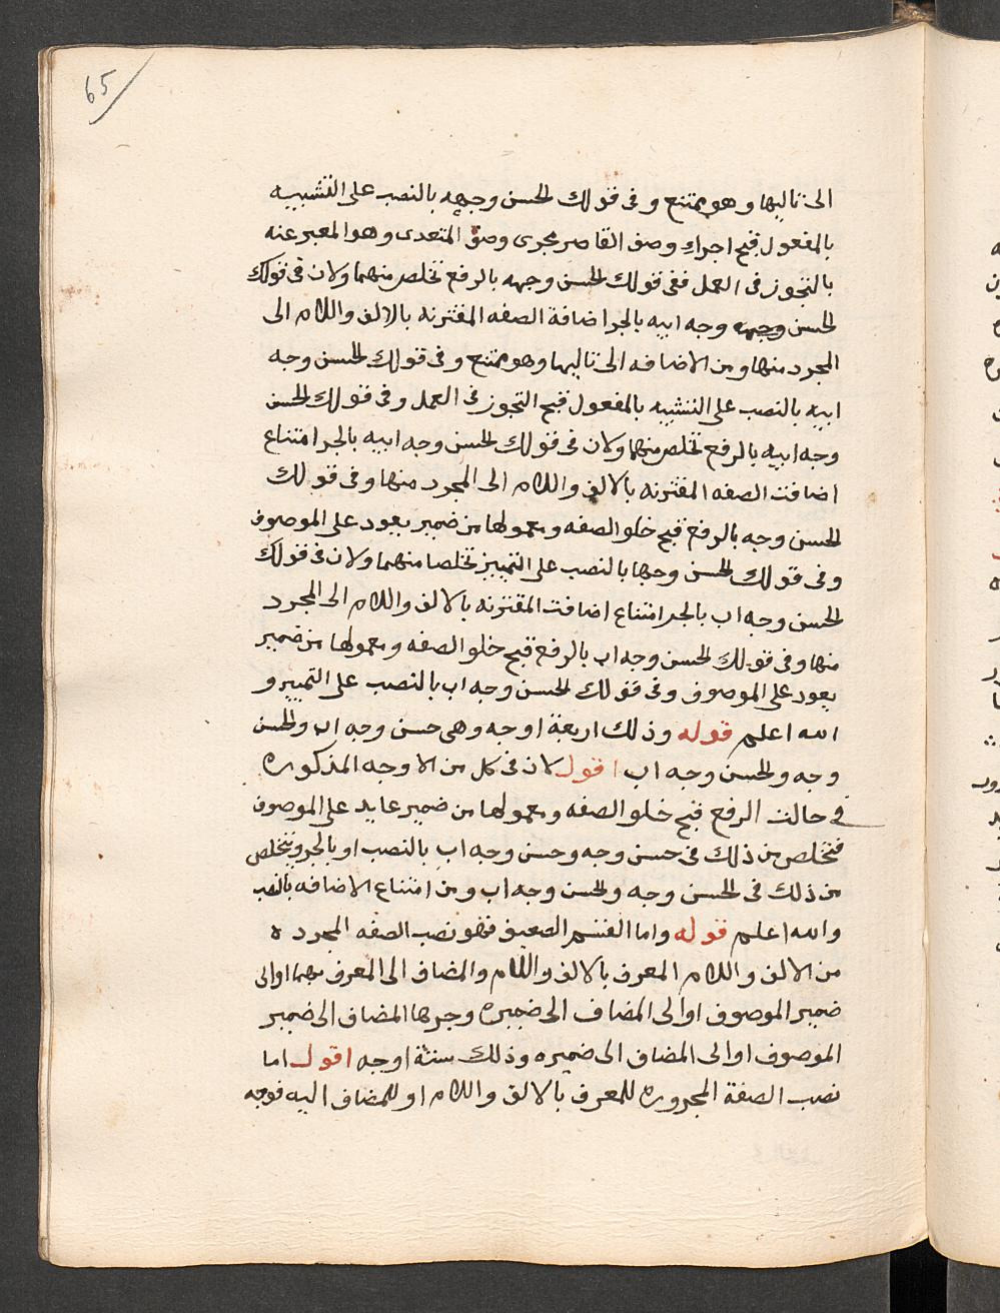 65
الى تاليها وهو ممتنع وفى قولك الحسن وجهه بالنصب على التشبيه
بالمفعول قبح اجراء وصف القاصر مجرى وصف المتعدى وهو المعبر عنه
بالتجوز فى العمل ففى قولك الحسن وجهه بالرفع تخلص منهما ولان فى قولك
الحسن وجه ابيه بالجر اضافة الصفه المقترنه بالالف واللام الى
المجرد منها ومن الاضافه الى تاليها وهو ممتنع وفى قولك الحسن وجه
ابيه بالنصب على التشبيه بالمفعول قبح التجوز فى العمل وفى قولك الحسن
وجه ابيه بالرفع تخلص منهما ولان فى قولك الحسن وجه ابيه بالجر امتناع
اضافت الصفه المقترنه بالالف واللام الى المجرد منها وفى قولك
الحسن وجه بالرفع قبح خلو الصفه ومعمولها من ضمير يعود على الموصوف
وفى قولك الحسن وجها بالنصب على التمييز تخلصا منهما ولان فى قولك
الحسن وجه اب بالجر امتناع اضافت المقترنه بالالف واللام الى المجرد
منها وفى قولك الحسن وجه اب بالرفع قبح خلو الصفه ومعمولها من ضمير
يعود على الموصوف وفى قولك الحسن وجه اب بالنصب على التمييز و
الله اعلم قوله وذلك اربعة اوجه وهى حسن وجه اب والحسن
وجه والحسن وجه اب اقول لان فى كل من الاوجه المذكوره
فى حالت الرفع قبح خلو الصفه ومعمولها من ضمير عايد على الموصوف
فتخلص من ذلك فى حسن وجه وحسن وجه اب بالنصب او بالجر ويتخلص
من ذلك فى الحسن وجه والحسن وجه اب ومن امتناع الاضافه بالنصب
والله اعلم قوله واما القسم الضعيف فهو نصب الصفه المجرده
من الالف واللام المعرف بالالف واللام والمضاف الى المعرف بهما او الى
ضمير الموصوف او الى المضاف الى ضميره وجرها المضاف الى ضمير
الموصوف او الى المضاف الى ضميره وذلك ستة اوجه اقول اما
نصب الصفة المجروره للمعرف بالالف واللام او للمضاف اليه فوجه